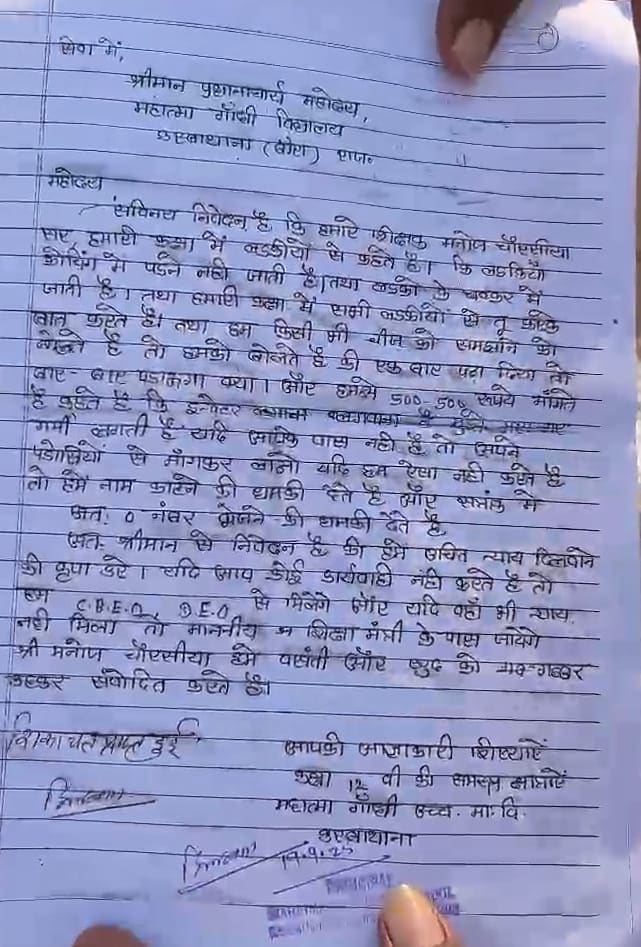 सेवा में,
श्रीमान प्रधानाचार्य महोदय,
महात्मा गाँधी विद्यालय
कस्बाथाना (बाँरा) राज.
महोदय
सविनय निवेदन है कि हमारे शिक्षक मनोज चौरसीया
सर हमारी कक्षा में लडकीयों से कहते है। कि लडकियाँ
कोचिंग में पडने नही जाती है। तथा लडको के चक्कर में
जाती है। तथा हमारी कक्षा में सभी लडकीयों से तू करके
बात करते है। तथा हम किसी भी चीज को समझाने को
बोलते है तो हमको बोलते है की एक बार पढा दिया तो
बार-बार पडाऊगा क्या। और हमसे 500-500 रूपये मांगते
है कहते है कि इन्वेटर लगवाना है मुझे
गर्मी लगती है यदि आपके पास नही है तो अपने
पडोसियों से माँगकर लाओ यदि हम ऐसा नही करते है
तो हमें नाम काटने की धमकी देते है और सत्रांक में
0 नंबर भेजने की धमकी देते है
अतः श्रीमान से निवेदन है की हमे उचित न्याय दिलवाने
की कृपा करे। यदि आप कोई कार्यवाही नही करते है तो
हम C.B.E.O, D.E.O से मिलेगे और यदि वहाँ भी न्याय
नही मिला तो माननीय शिक्षा मंत्री के पास जायेगे
श्री मनोज चौरसीया हमे बसंती और खुद को गब्बर
कहकर संबोदित करते है।
शिकायत प्राप्त हुई
आपकी आज्ञाकारी शिष्याऐं
कक्षा 12 वी की समस्त छात्राऐं
महात्मा गाँधी उच्च. मा. वि.
कस्बाथाना
19.9.25